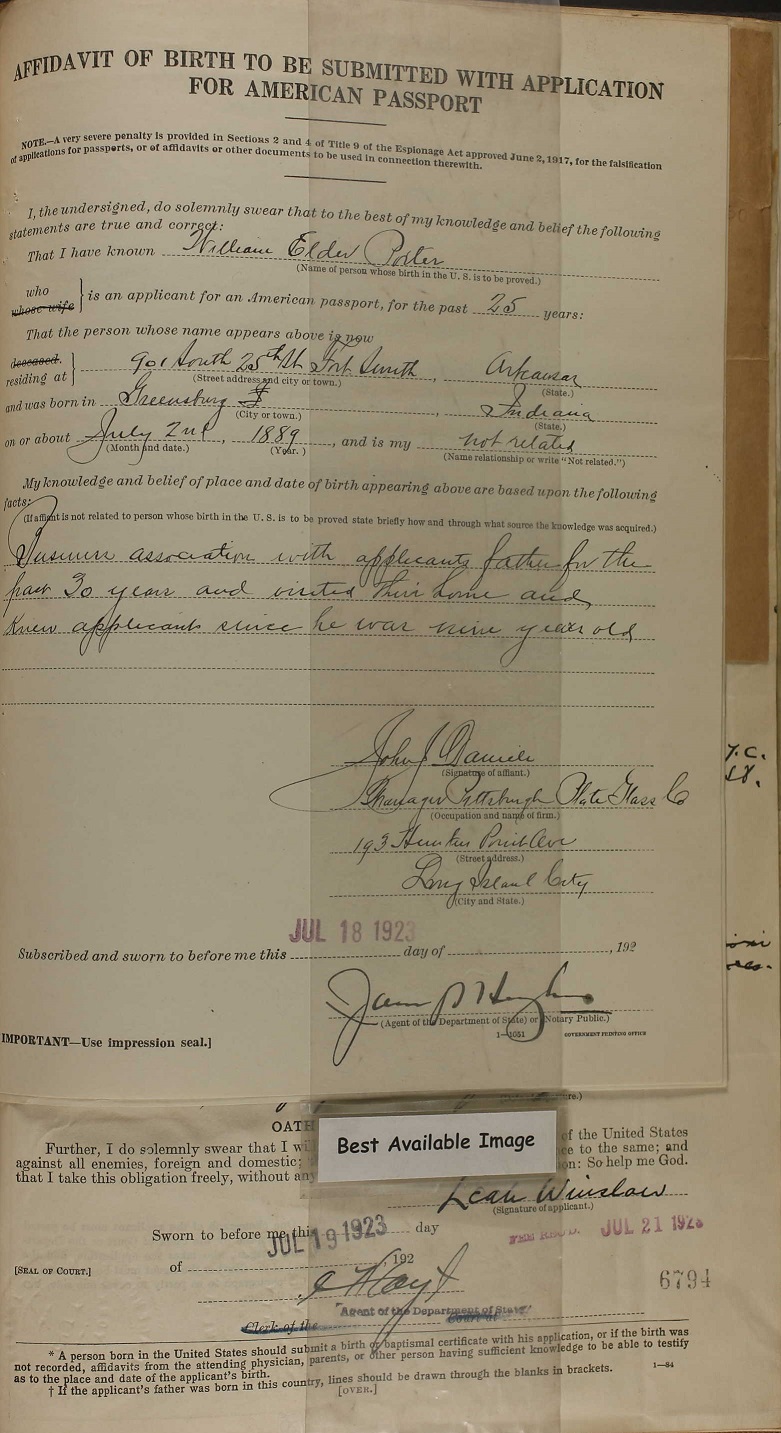 AFFIDAVIT OF BIRTH TO BE SUBMITTED WITH APPLICATION
FOR AMERICAN PASSPORT
NOTE.—A very severe penalty is provided in Sections 2 and 4 of Title 9 of the Espionage Act approved June 2, 1917, for the falsification
of applications for passports, or of affidavits or other documents to be used in connection therewith.
I, the undersigned, do solemnly swear that to the best of my knowledge and belief the following
statements are true and correct:
That I have known William Elder Porter
(Name of person whose birth in the U. S. is to be proved.)
who
whose wife } is an applicant for an American passport, for the past 25 years:
That the person whose name appears above is now
deceased.
residing at } 901 South 25th St Fort Smith, Arkansas
(Street address and city or town.) (State.)
and was born in Greensburg, Indiana
(City or town.) (State.)
on or about July 2nd, 1889, and is my not related
(Month and date.) (Year.) (Name relationship or write "Not related.")
My knowledge and belief of place and date of birth appearing above are based upon the following
facts:
(If affiant is not related to person whose birth in the U. S. is to be proved state briefly how and through what source the knowledge was acquired.)
Business association with applicants father for the
past 30 years and visited their home and
Knew applicant since he was nine years old
John J Daniels
(Signature of affiant.)
Manager Pittsburgh Plate Glass Co
(Occupation and name of firm.)
193 Hunters Point Ave
(Street address.)
Long Island City
(City and State.)
JUL 18 1923
Subscribed and sworn to before me this day of , 192
(Agent of the Department of State) or (Notary Public.)
1—1051 GOVERNMENT PRINTING OFFICE
IMPORTANT—Use impression seal.]
OATH
Best Available Image
Further, I do solemnly swear that I wi of the United States
against all enemies, foreign and domestic; ce to the same; and
that I take this obligation freely, without any on: So help me God.
Leah Winslow
(Signature of applicant.)
Sworn to before me this day
JUL 19 1923
JUL 21 1923
of , 192
[SEAL OF COURT.]
6794
Agent of the Department of State
Clerk of the Court at
* A person born in the United States should submit a birth or baptismal certificate with his application, or if the birth was
not recorded, affidavits from the attending physician, parents, or other person having sufficient knowledge to be able to testify
as to the place and date of the applicant's birth.
† If the applicant's father was born in this country, lines should be drawn through the blanks in brackets.
[OVER.]
1—84